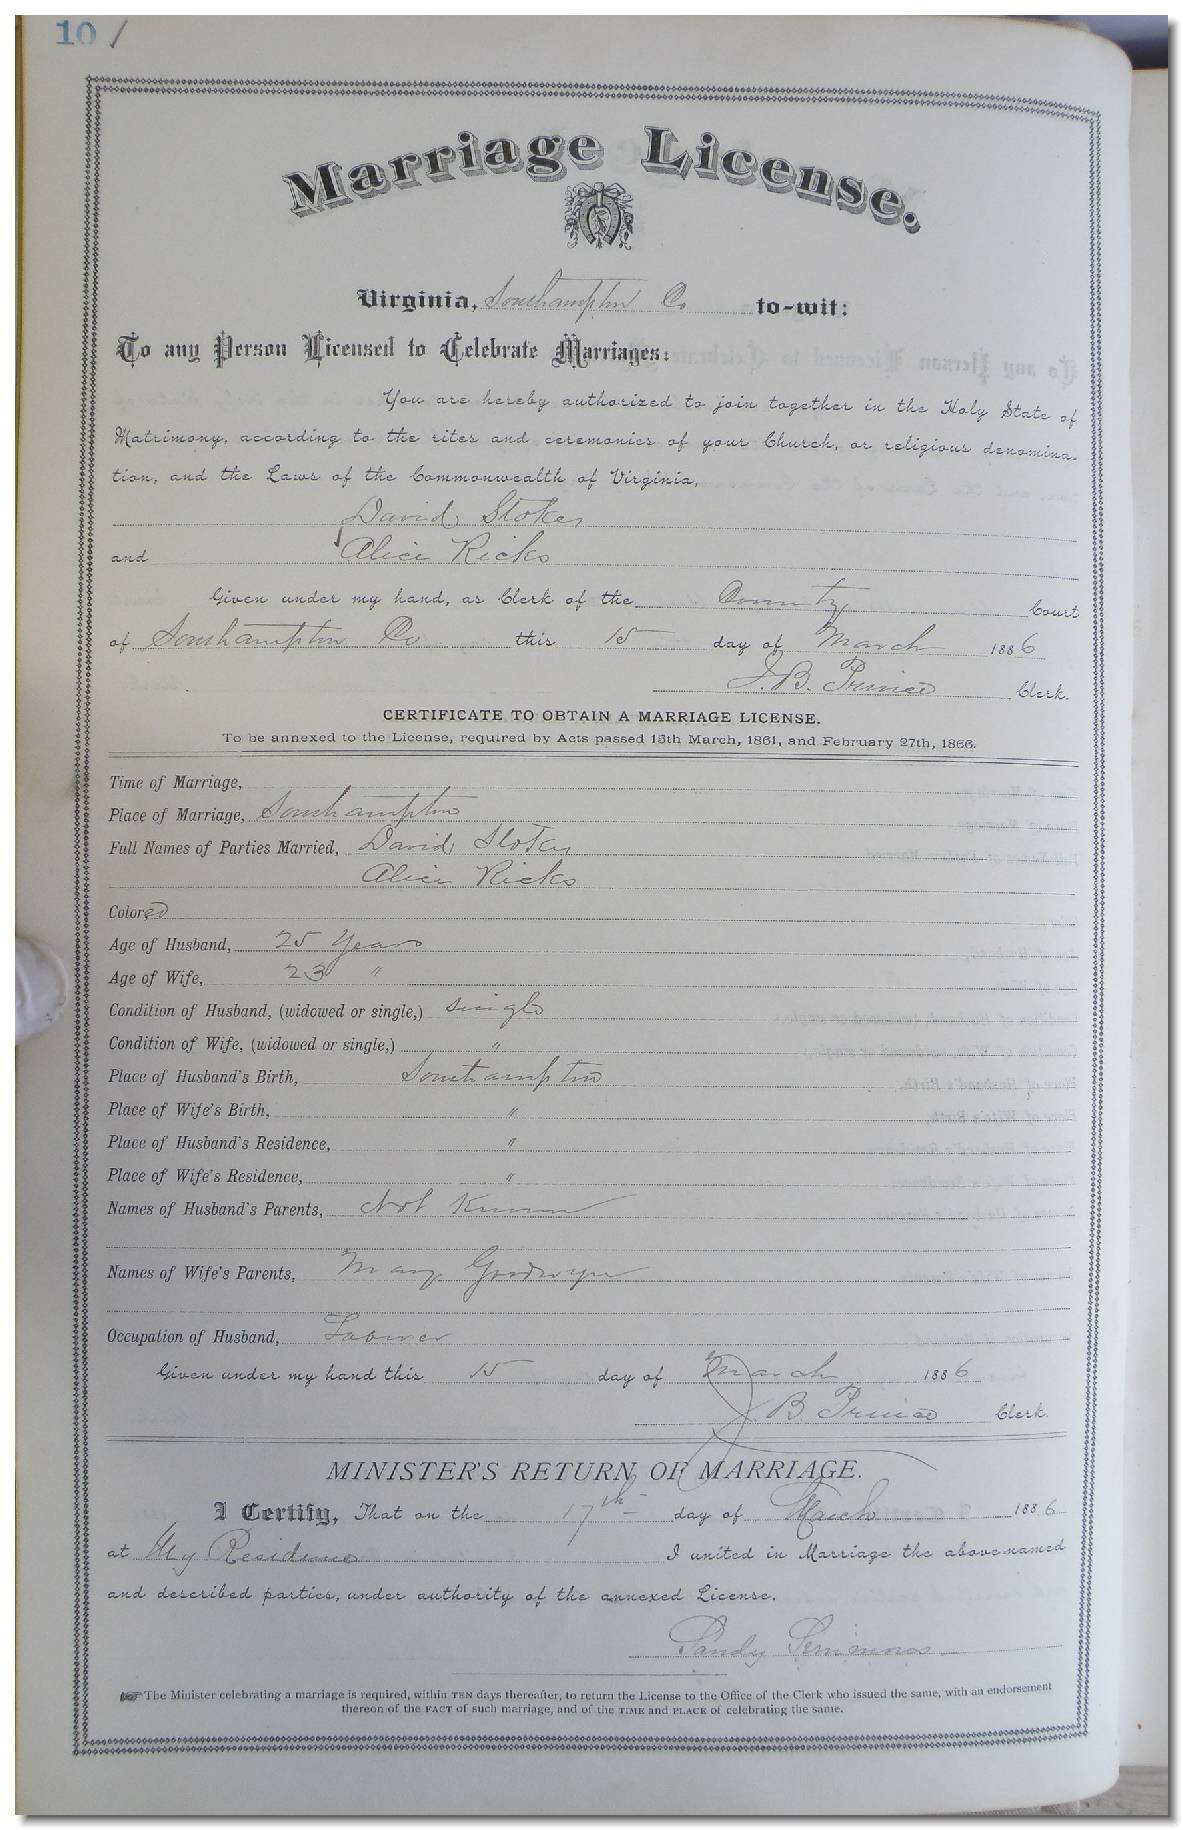 10 /
Marriage License.
Virginia, Southampton Co to-wit:
To any Person Licensed to Celebrate Marriages:
You are hereby authorized to join together in the Holy State of
Matrimony, according to the rites and ceremonies of your Church, or religious denomina-
tion, and the Laws of the Commonwealth of Virginia,
David Stokes
and Alice Ricks
Given under my hand, as Clerk of the County Court
of Southampton Co this 15 day of March 1886
J. B. Prince Clerk.
CERTIFICATE TO OBTAIN A MARRIAGE LICENSE.
To be annexed to the License, required by Acts passed 15th March, 1861, and February 27th, 1866.
Time of Marriage,
Place of Marriage, Southampton
Full Names of Parties Married, David Stokes
Alice Ricks
Colored
Age of Husband, 25 Years
Age of Wife, 23 "
Condition of Husband, (widowed or single,) single
Condition of Wife, (widowed or single,) "
Place of Husband's Birth, Southampton
Place of Wife's Birth, "
Place of Husband's Residence, "
Place of Wife's Residence, "
Names of Husband's Parents, Not Known
Names of Wife's Parents, Mary Goodwyn
Occupation of Husband, Laborer
Given under my hand this 15 day of March 1886
J. B. Prince Clerk.
MINISTER'S RETURN OF MARRIAGE.
I Certify, That on the 17th day of March 1886
at My Residence I united in Marriage the above-named
and described parties, under authority of the annexed License.
Sandy Semmons
The Minister celebrating a marriage is required, within TEN days thereafter, to return the License to the Office of the Clerk who issued the same, with an endorsement
thereon of the FACT of such marriage, and of the TIME and PLACE of celebrating the same.